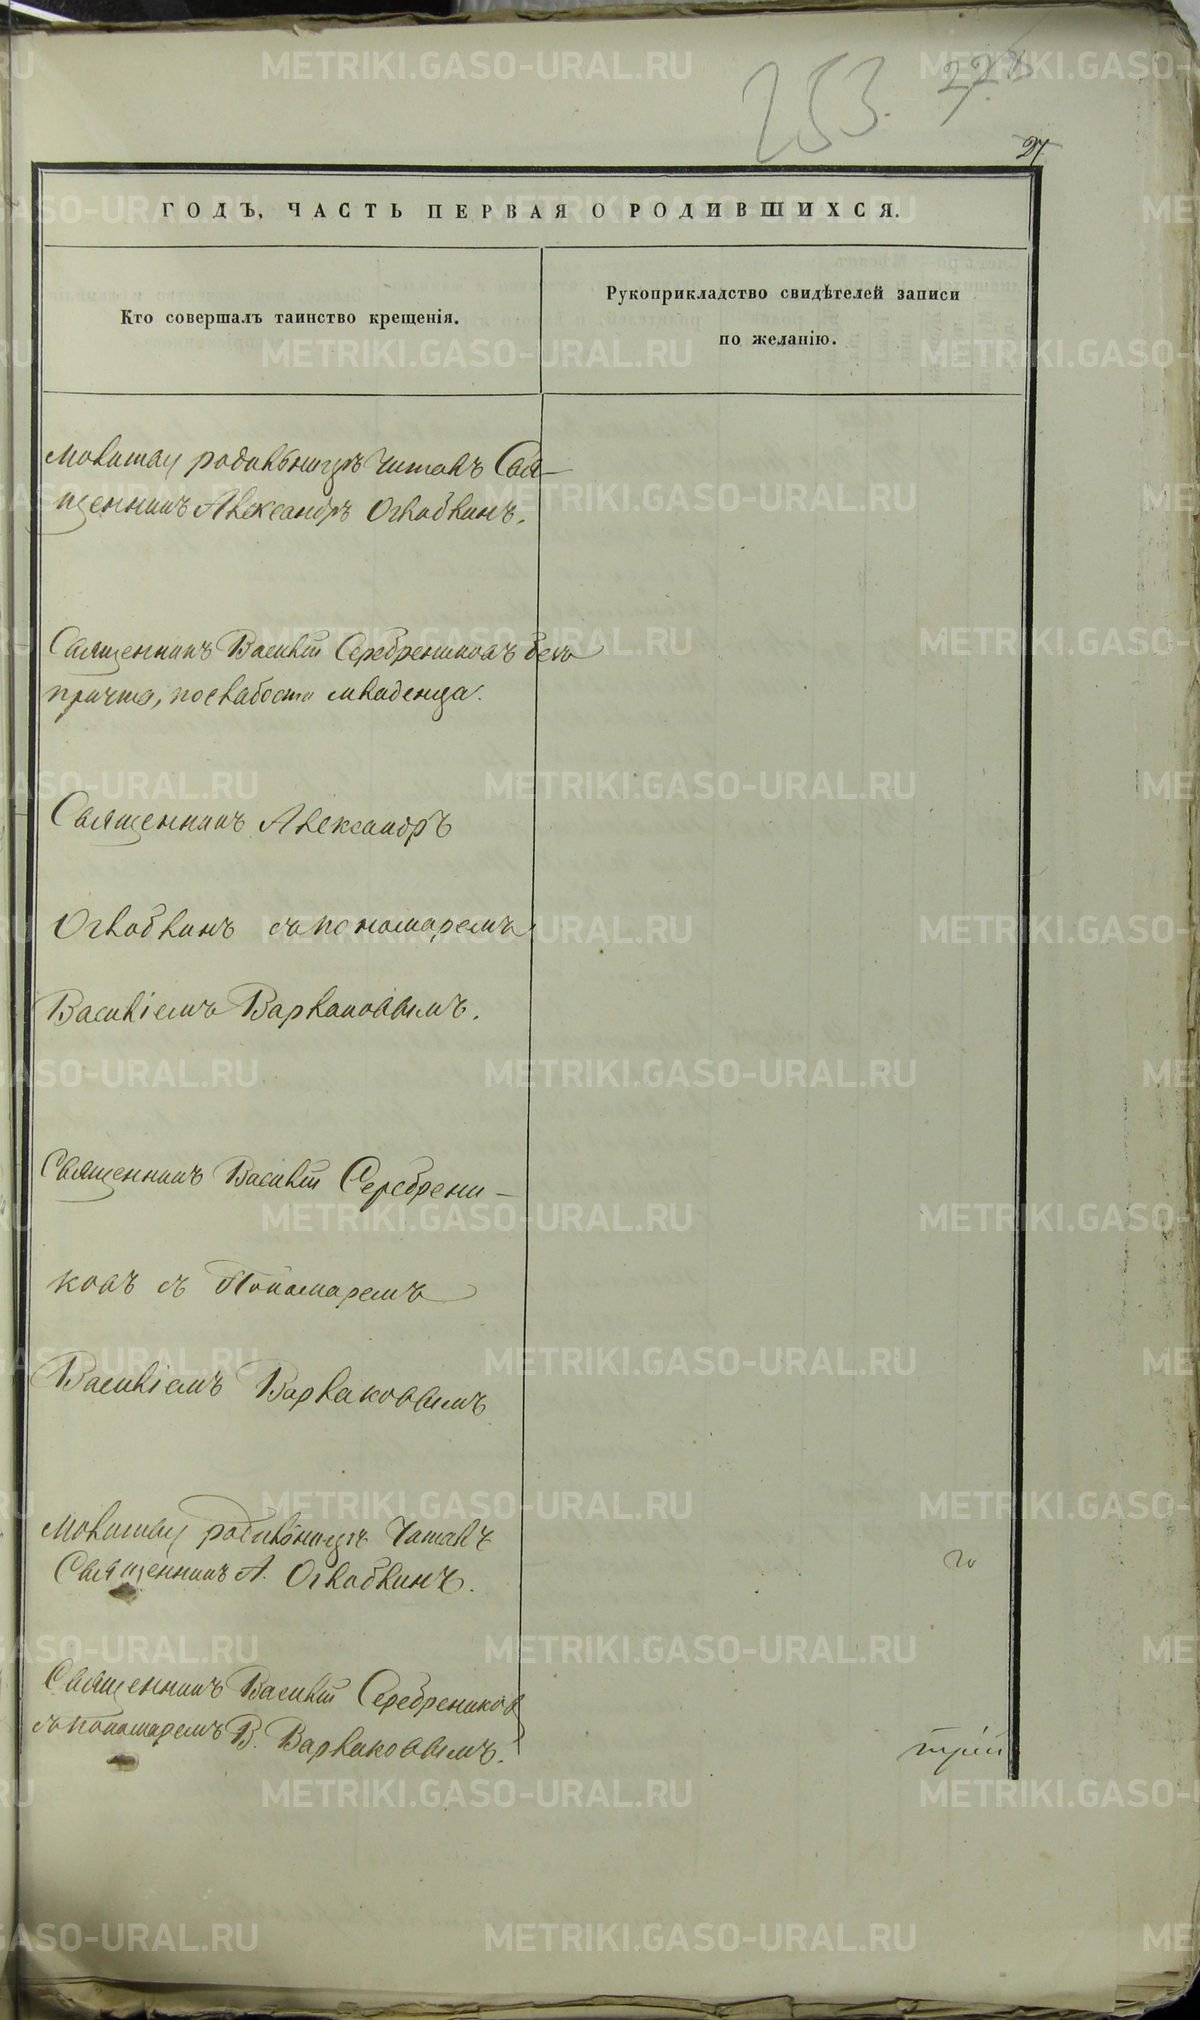 253
27
ГОДЪ, ЧАСТЬ ПЕРВАЯ О РОДИВШИХСЯ.
Кто совершалъ таинство крещенія.
Рукоприкладство свидѣтелей записи
по желанію.
молитву родильницѣ читалъ Свя-
щенникъ Александръ Оглоблинъ.
Священникъ Василій Серебрениковъ безъ
причта, по слабости младенца.
Священникъ Александръ
Оглоблинъ съ пономаремъ
Василіемъ Варлаковымъ.
Священникъ Василій Серебрени-
ковъ съ Пономаремъ
Василіемъ Варлаковымъ
молитву родильницѣ читалъ
Священникъ А. Оглоблинъ.
го
Священникъ Василій Серебрениковъ
съ пономаремъ В. Варлаковымъ.
METRIKI.GASO-URAL.RU